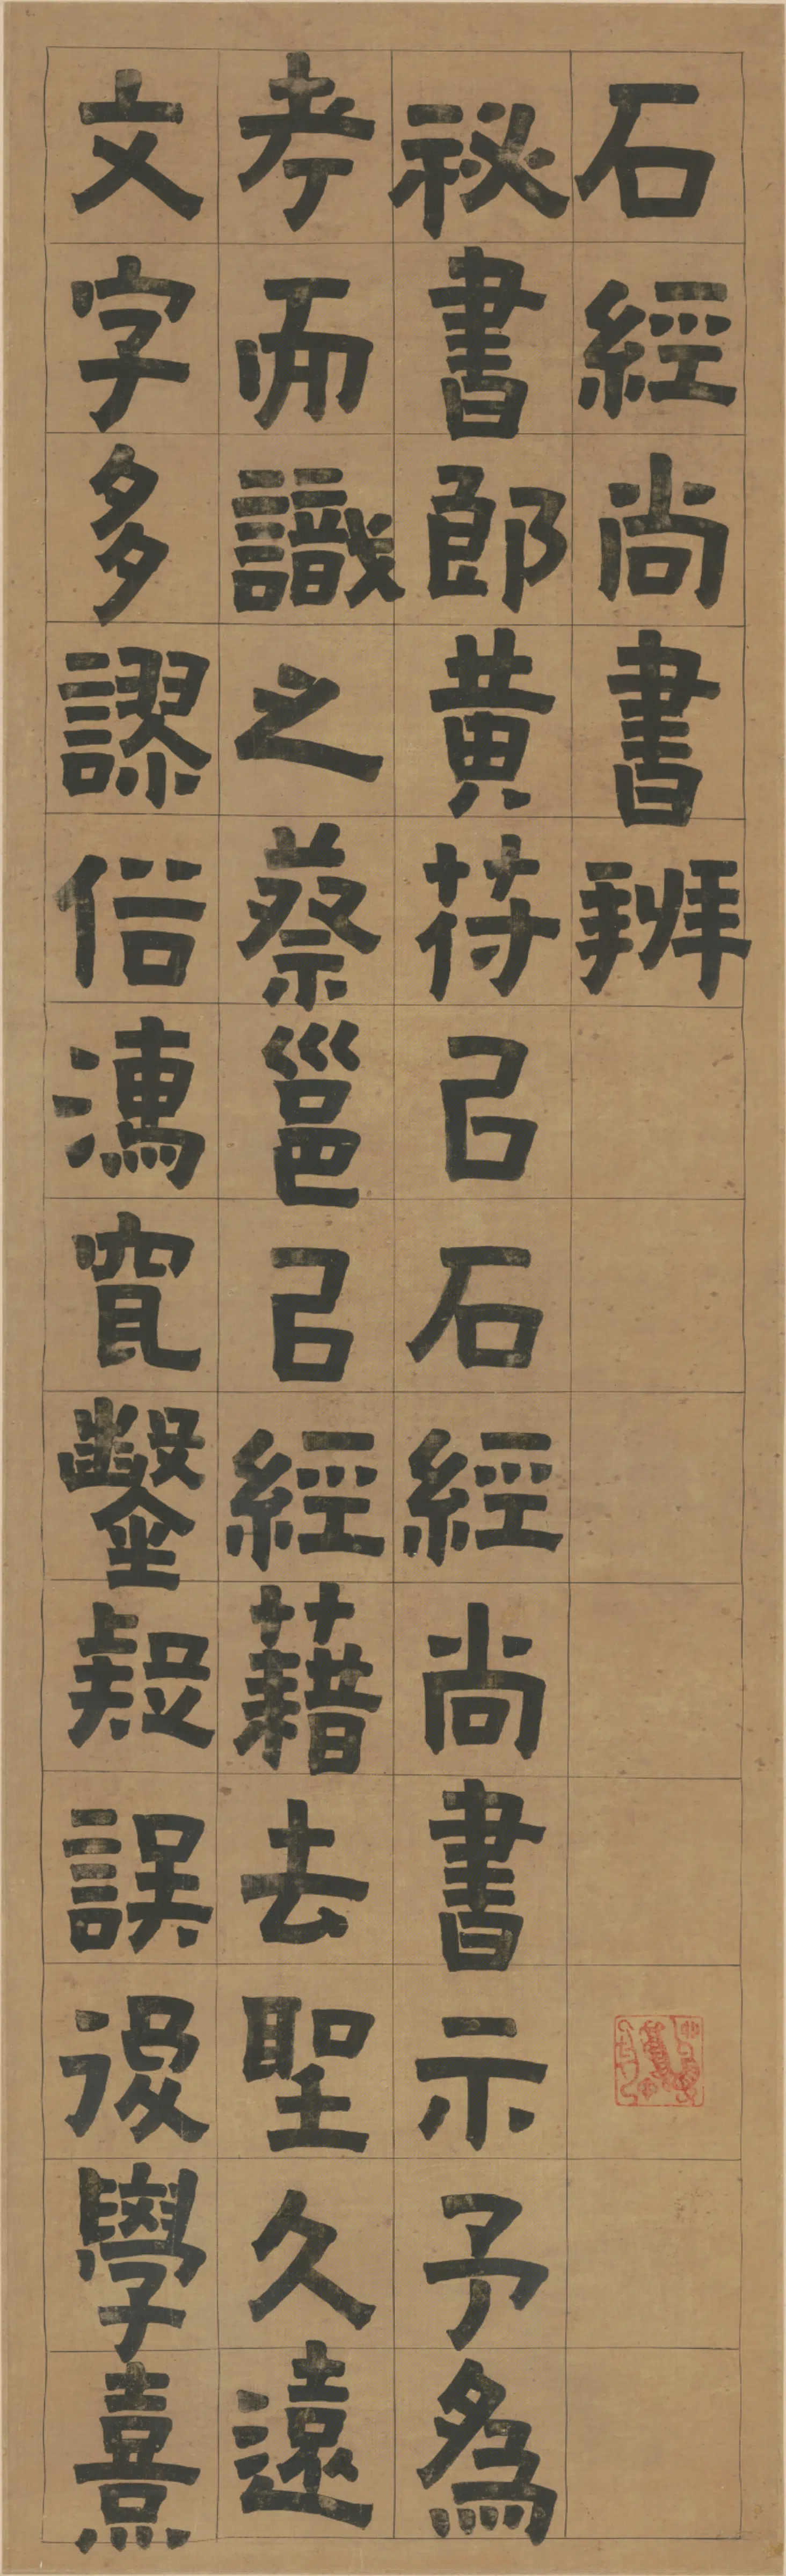 石經尚書辨
祕書郎黃苻㠯石經尚書示予爲
考而識之蔡邕㠯經藉去聖久遠
文字多謬俗穿鑿疑誤後學熹